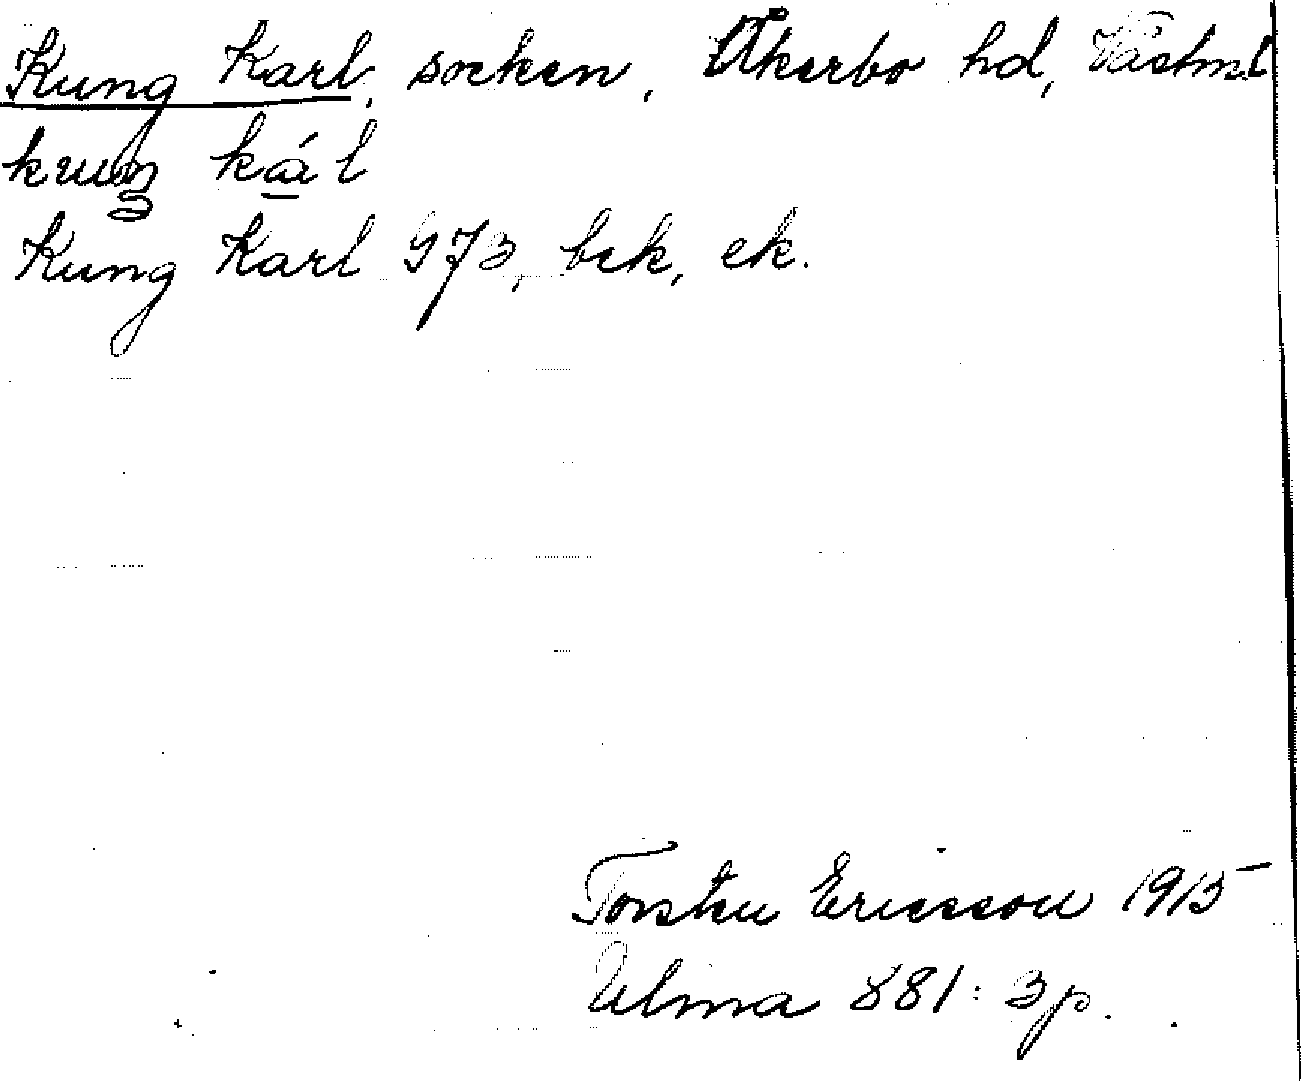 Kung Karl, socken, Åkerbo hd, Västml
kuŋ kál
Kung Karl 973, bek, ek.
Torsten Ericsson 1915
Ulma 881: 3 p.